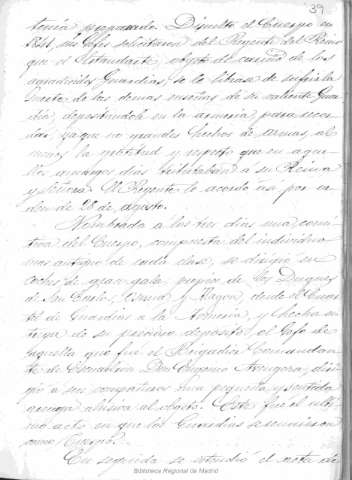 39
tenia preparado. Disuelto el Cuerpo en
1841, sus Gefes solicitaron del Regente del Reino
que el Estandarte, objeto del cariño de los
agradecidos Guardias, se le librase de sufrir la
suerte de las demas enseñas de su valiente Guar
dia, depositandolo en la armeria para recor
dar, ya que no grandes hechos de armas, al
menos la gratitud y respeto que en aque
llos amargos dias tributaban á su Reina
y Señora. El Regente lo acordó asi por or
den de 28 de agosto.
Nombrada á los tres dias una comi
tiva del Cuerpo, compuesta del individuo
mas antiguo de cada clase, se dirigió en
coches de gran gala, propios de los Duques
de San Carlos, Osuna y Hijar, desde el Cuar
tel de Guardias á la Armeria, y hecha en
trega de su precioso deposito, el Gefe de
aquella que fué el Brigadier Comandan
te de Escuadron Don Eugenio diri
gió á sus compañeros una pequeña y sentida
arenga alusiva al objeto. Este fué el ulti
mo acto en que los Guardias se reunieron
como Cuerpo.
En seguida se estendió el acta de
Biblioteca Regional de Madrid